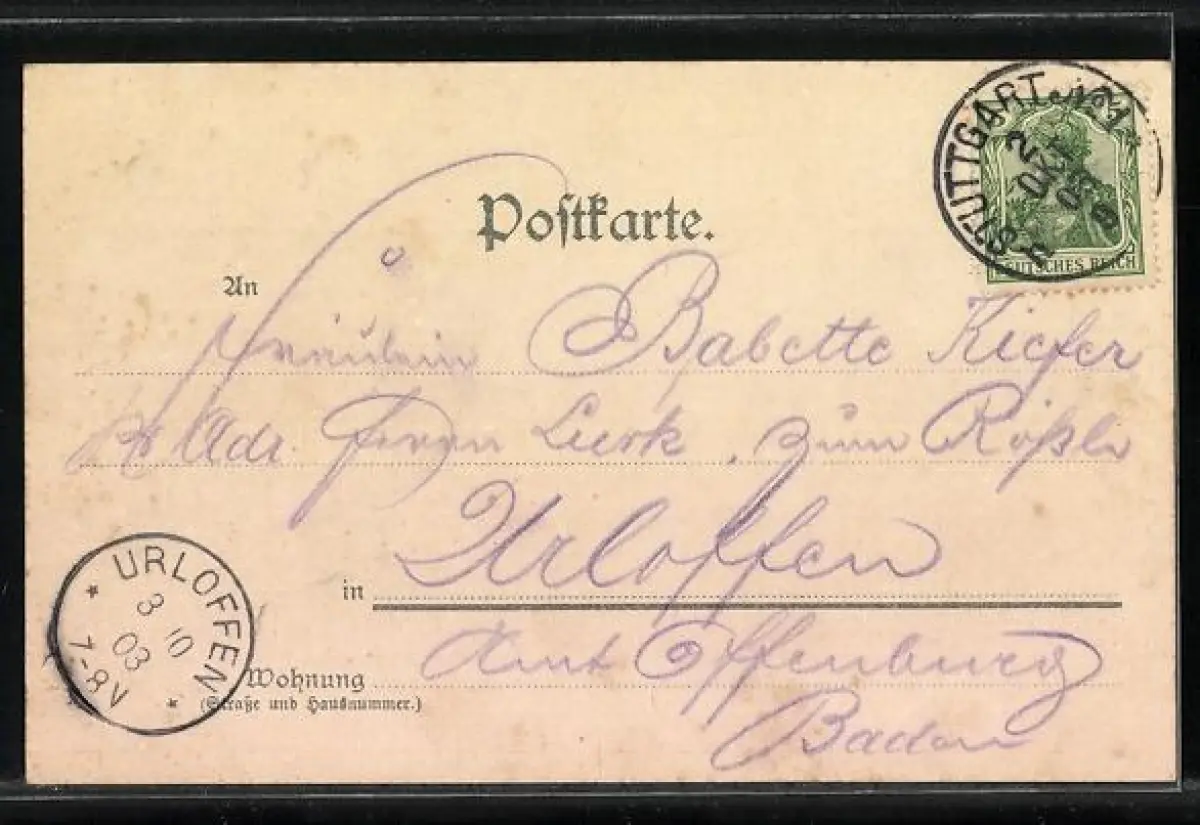 Postkarte.
STUTTGART
2 OKT 03
DEUTSCHES REICH
An
Fräulein Babette Kiefer
Adr. zum Rößle
Urloffen
in
Amt Offenburg
Wohnung
(Straße und Hausnummer.)
Baden
URLOFFEN
3 10 03
7-8V